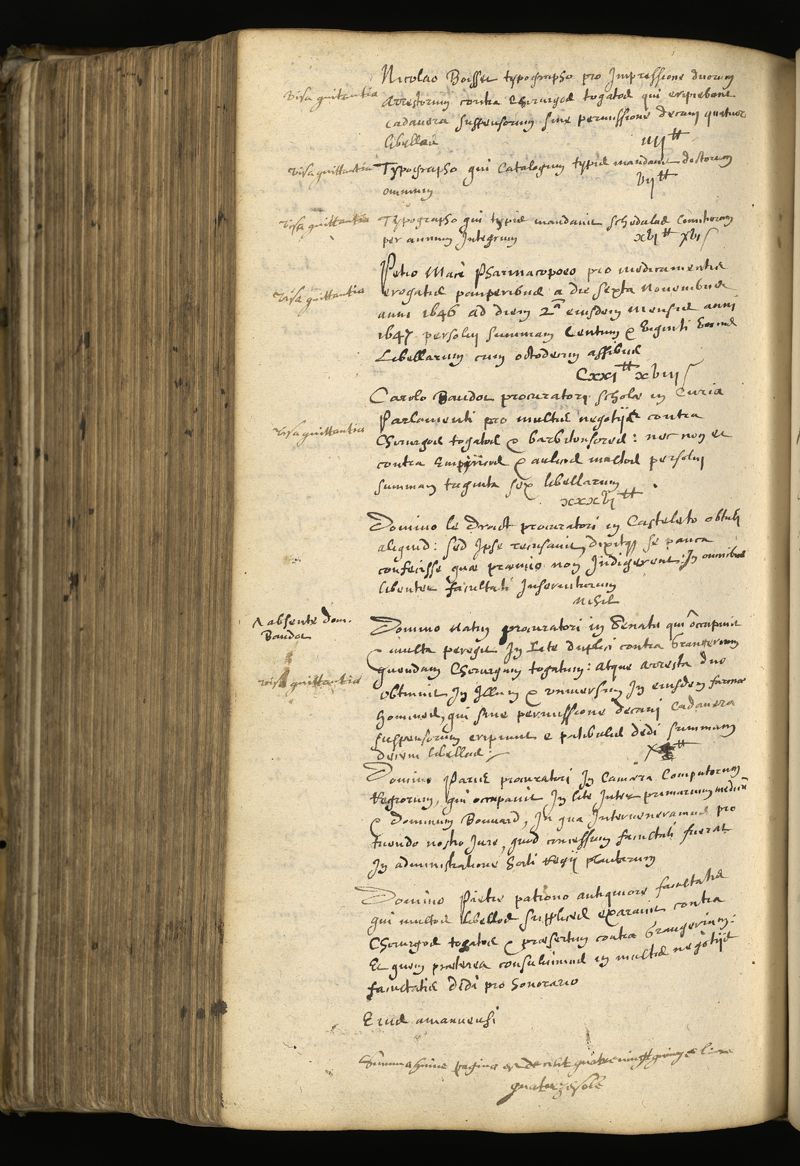 Visa quitantia
Nicolao Boisset typographo pro Impressione duorum
Arrestorum contra Chirurgos togatos qui eripiebant
cadavera suspensorum sine permissione decani quatuor
libellas
iiij ₶
Visa quittantia
Typographo qui Catalogum typis mandavit doctorum
omnium
vij ₶
Visa quittantia
Typographo qui typis mandavit schedulas Comitiorum
per annum Integrum
xvi ₶ xvi ſ
Visa quittantia
Petro Mare Pharmacopoeo pro medicamentis
erogatis pauperibus a die sexta Novembris
anni 1646 ad diem 2am eiusdem mensis anni
1647 persolvi summam Centum & Viginti
Libellarum cum octodecim assibus
Cxxi ₶ xviii ſ
Visa quittantia
Carolo Baudot procuratori scholae in Curia
Parlamenti pro multis negotijs contra
Chirurgos togatos & barbitonsores: nec non et
contra Empiricos & aulicos multos persolvi
summam triginta sex libellarum
xxxvi ₶
Domino le Droict procuratori in Casteleto obtuli
aliquid: sed Ipse recusavit, dixitq; se pauca
confecisse quae praemio non Indigerent: In omnibus
libenter facultati Inserviturum
Nihil
Λ absente dom.
Baudot
Visa quittantia
Domino Matin procuratori in Senatu qui Λ occupavit
& multa peregit In Lite duplici contra Grangerium
quendam Chirurgum togatum: atque arresta duo
obtinuit In Illum & universim In eiusdem farinae
homines, qui sine permissione decani Cadavera
suspensorum eripiunt e patibulis dedi summam
decem libellas
x ₶
Domino Paris procuratori In Camera Computorum
Regiorum, qui occupavit In lite Inter primarium medicum
& Dominum Bouvard, In qua Interveneramus pro
tuendo nostro Jure, quod concessum facultati fuerat
In administratione horti Regij plantarum
Domino Pietre patrono antiquiore facultatis
qui multos libellos supplices exaravit contra
Chirurgos togatos & praesertim contra Grangerium:
Et quem praeterea consuluimus in multis negotijs
facultatis dedi pro honorario
Eius amanuensi
Summa huius paginae est de cent quatrevingt quinze livres
quatorze sols